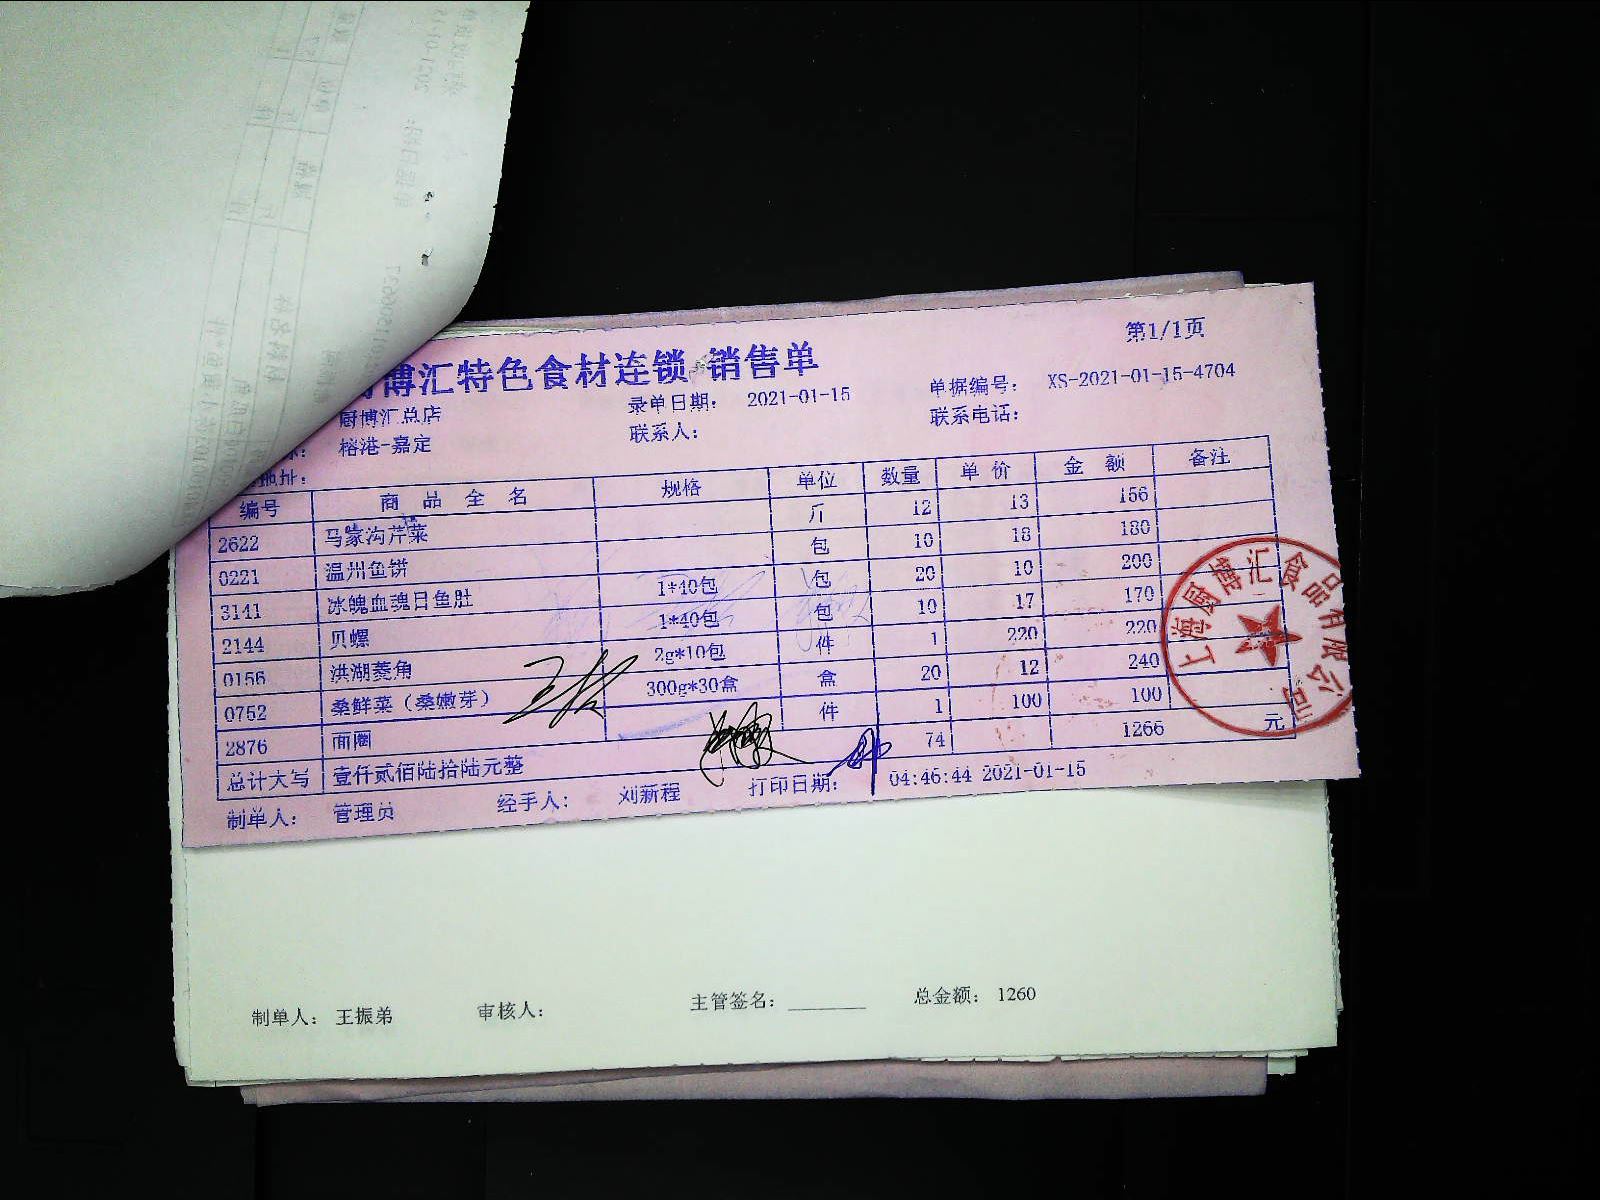 第1/1页
博汇特色食材连锁 销售单
厨博汇总店 录单日期: 2021-01-15 单据编号: XS-2021-01-15-4704
榕港-嘉定 联系人: 联系电话:
地址:
编号 商品全名 规格 单位 数量 单价 金额 备注
2622 马家沟芹菜 斤 12 13 156
0221 温州鱼饼 包 10 18 180
3141 冰魄血魂目鱼肚 1*40包 包 20 10 200
2144 贝螺 1*40包 包 10 17 170
0156 洪湖菱角 2g*10包 件 1 220 220
0752 桑鲜菜（桑嫩芽） 300g*30盒 盒 20 12 240
2876 面圈 件 1 100 100
总计大写 壹仟贰佰陆拾陆元整 74 1266 元
制单人: 管理员 经手人: 刘新程 打印日期: 04:46:44 2021-01-15
上海厨博汇食品有限公司
制单人: 王振弟 审核人: 主管签名: 总金额: 1260